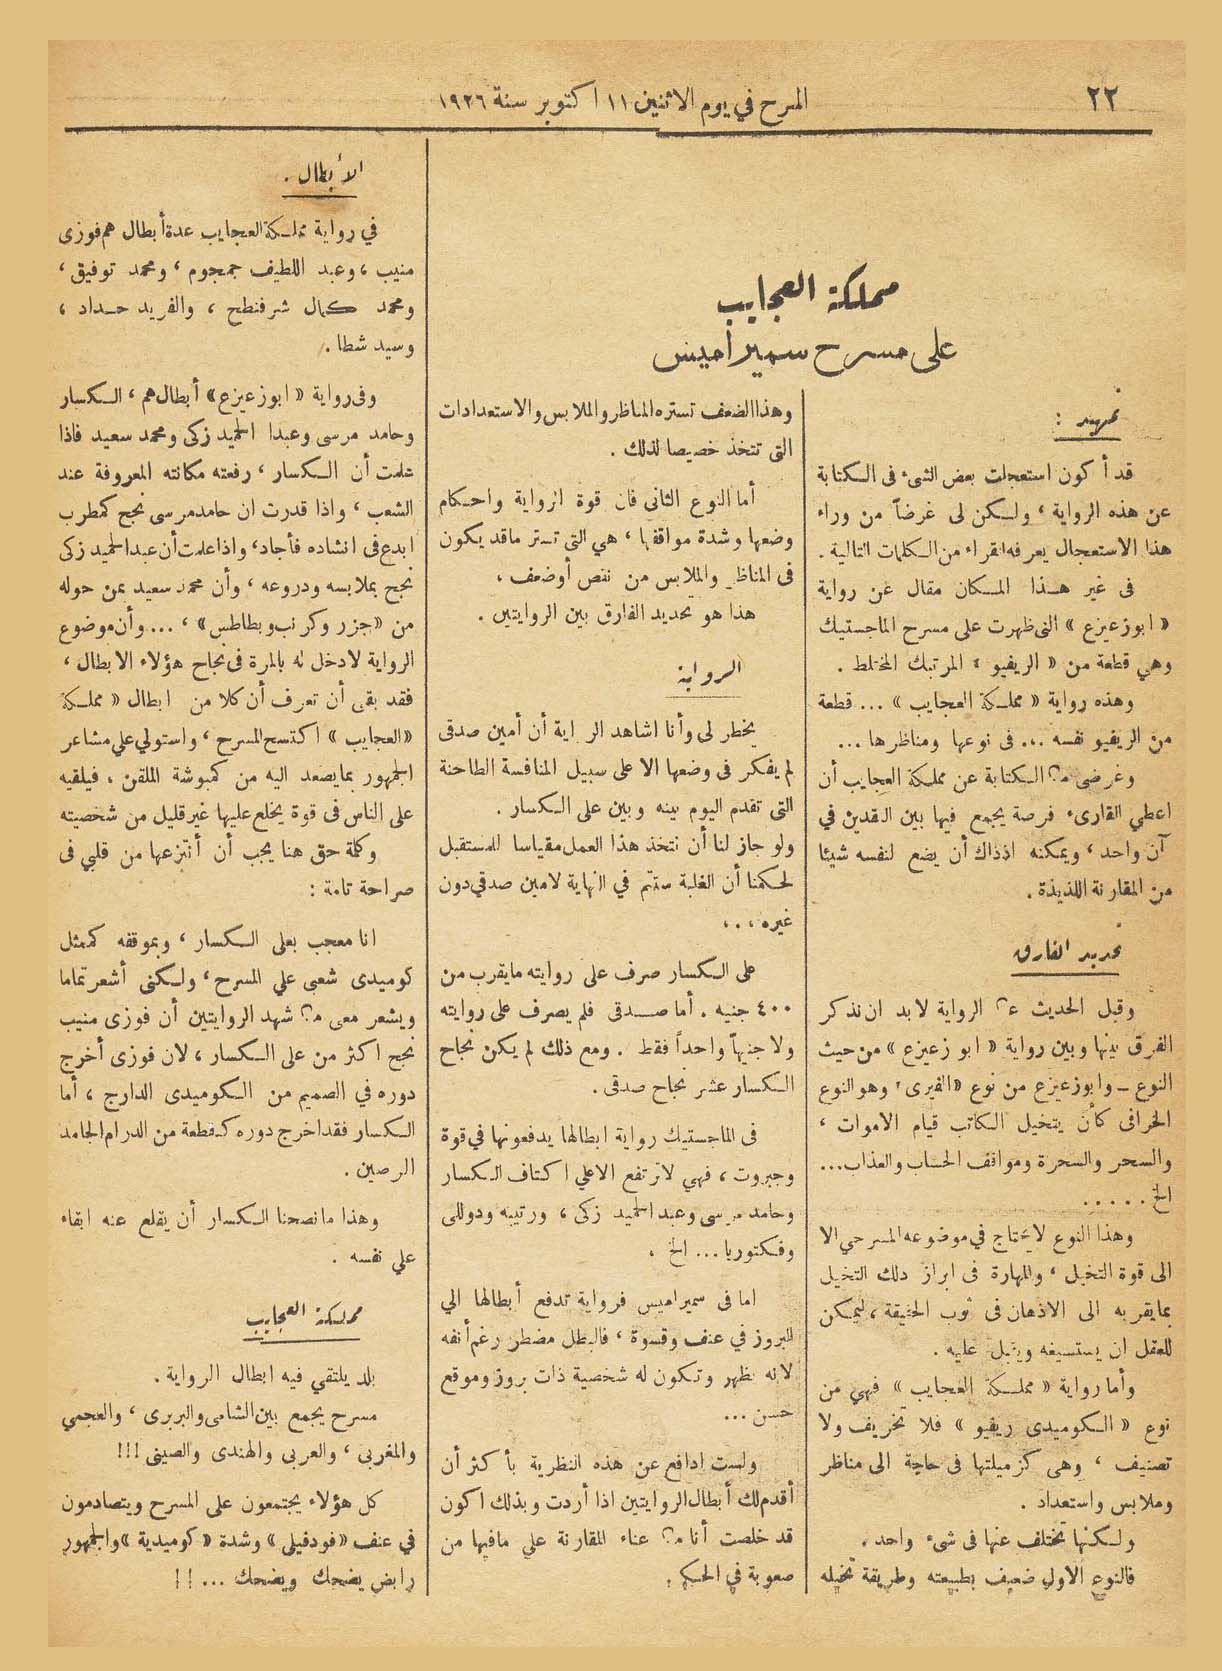 ٢٢
المسرح في يوم الاثنين ١١ اكتوبر سنة ١٩٢٦
مملكة العجايب
على مسرح سميراميس
تمهيد :
قد أكون استعجلت بعض الشىء فى الكتابة
عن هذه الرواية ، ولكن لى غرضاً من وراء
هذا الاستعجال يعرفه القراء من الكلمات التالية .
فى غير هذا المكان مقال عن رواية
« ابو زعيزع » التى ظهرت على مسرح الماجستيك
وهي قطعة من « الريفيو » المرتبك المختلط .
وهذه رواية « مملكة العجايب » ... قطعة
من الريفيو نفسه ... فى نوعها ومناظرها ...
وغرضى من الكتابة عن مملكة العجايب أن
اعطي القارىء فرصة يجمع فيها بين النقدين في
آن واحد ، ويمكنه اذ ذاك أن يضع لنفسه شيئا
من المقارنة اللذيذة .
تحديد الفارق
وقبل الحديث عن الرواية لابد ان نذكر
الفرق بينها وبين رواية « ابو زعيزع » من حيث
النوع ــ وابو زعيزع من نوع « الفيرى » وهو النوع
الخرافى كأن يتخيل الكاتب قيام الاموات ،
والسحر والسحرة ومواقف الحساب والعذاب...
الخ . . . . .
وهذا النوع لا يحتاج في موضوعه المسرحي الا
الى قوة التخيل ، والمهارة فى ابراز ذلك التخيل
بما يقربه الى الاذهان فى ثوب الحقيقة ، ليمكن
للعقل ان يستسيغه ويقبل عليه .
وأما رواية « مملكة العجايب » فهي من
نوع « الكوميدى ريفيو » فلا تخريف ولا
تصنيف ، وهى كزميلتها فى حاجة الى مناظر
وملابس واستعداد .
ولكنها تختلف عنها فى شىء واحد .
فالنوع الاول ضعيف بطبيعته وطريقة تخيله
وهذا الضعف تستره المناظر والملابس والاستعدادات
التى تتخذ خصيصا لذلك .
أما النوع الثانى فان قوة الرواية واحكام
وضعها وشدة مواقفها ، هي التى تستر ماقد يكون
فى المناظر والملابس من نقص أوضعف .
هذا هو تحديد الفارق بين الروايتين .
الرواية
يخطر لى وأنا اشاهد الرواية أن أمين صدقى
لم يفكر فى وضعها الا على سبيل المنافسة الطاحنة
التى تقدم اليوم بينه وبين على الكسار .
ولو جاز لنا أن نتخذ هذا العمل مقياسا للمستقبل
لحكمنا أن الغلبة ستتم في النهاية لامين صدقي دون
غيره ...
على الكسار صرف على روايته مايقرب من
٤٠٠ جنيه . أما صدقى فلم يصرف على روايته
ولا جنيهاً واحداً فقط . ومع ذلك لم يكن نجاح
الكسار عشر نجاح صدقى .
فى الماجستيك رواية ابطالها يدفعونها في قوة
وجبروت ، فهي لا ترتفع الاعلي اكتاف الكسار
وحامد مرسى وعبد الحميد زكى ، ورتيبه ودوللى
وفكتوريا ... الخ .
اما فى سميراميس فرواية تدفع أبطالها الي
البروز في عنف وقسوة ، فالبطل مضطر رغم أنفه
لانه يظهر وتكون له شخصية ذات بروز وموقع
حسن ...
ولست ادافع عن هذه النظرية بأكثر أن
أقدم لك أبطال الروايتين اذا أردت وبذلك اكون
قد خلصت أنا من عناء المقارنة علي مافيها من
صعوبة في الحكم .
الأبطال .
في رواية مملكة العجايب عدة أبطال هم فوزى
منيب ، وعبد اللطيف جمجوم ، ومحمد توفيق ،
ومحمد كمال شرفنطح ، والفريد حداد ،
وسيد شطا .
وفى رواية « ابو زعيزع » أبطال هم ، الكسار
وحامد مرسى وعبدا الحميد زكى ومحمد سعيد فاذا
علمت أن الكسار ، رفعته مكانته المعروفة عند
الشعب ، واذا قدرت ان حامد مرسى نجح كمطرب
ابدع فى انشاده فأجاد ، واذا علمت أن عبد الحميد زكى
نجح بملابسه ودروعه ، وأن محمد سعيد بمن حوله
من « جزر وكرنب وبطاطس » ، ... وأن موضوع
الرواية لادخل له بالمرة فى نجاح هؤلاء الابطال ،
فقد بقى أن تعرف أن كلا من ابطال « مملكة
« العجايب » اكتسح المسرح ، واستولي علي مشاعر
الجمهور بما يصعد اليه من كمبوشة الملقن ، فيلقيه
على الناس فى قوة يخلع عليها غير قليل من شخصيته
وكلمة حق هنا يجب أن أنتزعها من قلبي فى
صراحة تامة :
انا معجب بعلى الكسار ، وبموقفه كممثل
كوميدى شعبى علي المسرح ، ولكنى أشعر تماما
ويشعر معى من شهد الروايتين أن فوزى منيب
نجح اكثر من على الكسار ، لان فوزى أخرج
دوره في الصميم من الكوميدى الدارج ، أما
الكسار فقد اخرج دوره كقطعة من الدرام الجامد
الرصين .
وهذا مانصحنا الكسار أن يقلع عنه ابقاء
علي نفسه .
مملكة العجايب
بلد يلتقي فيه ابطال الرواية .
مسرح يجمع بين الشامى والبربرى ، والعجمي
والمغربى ، والعربى والهندى والصينى !!!
كل هؤلاء يجتمعون على المسرح ويتصادمون
في عنف « فودفيلى » وشدة « كوميدية » والجمهور
رابض يضحك ويضحك ... !!